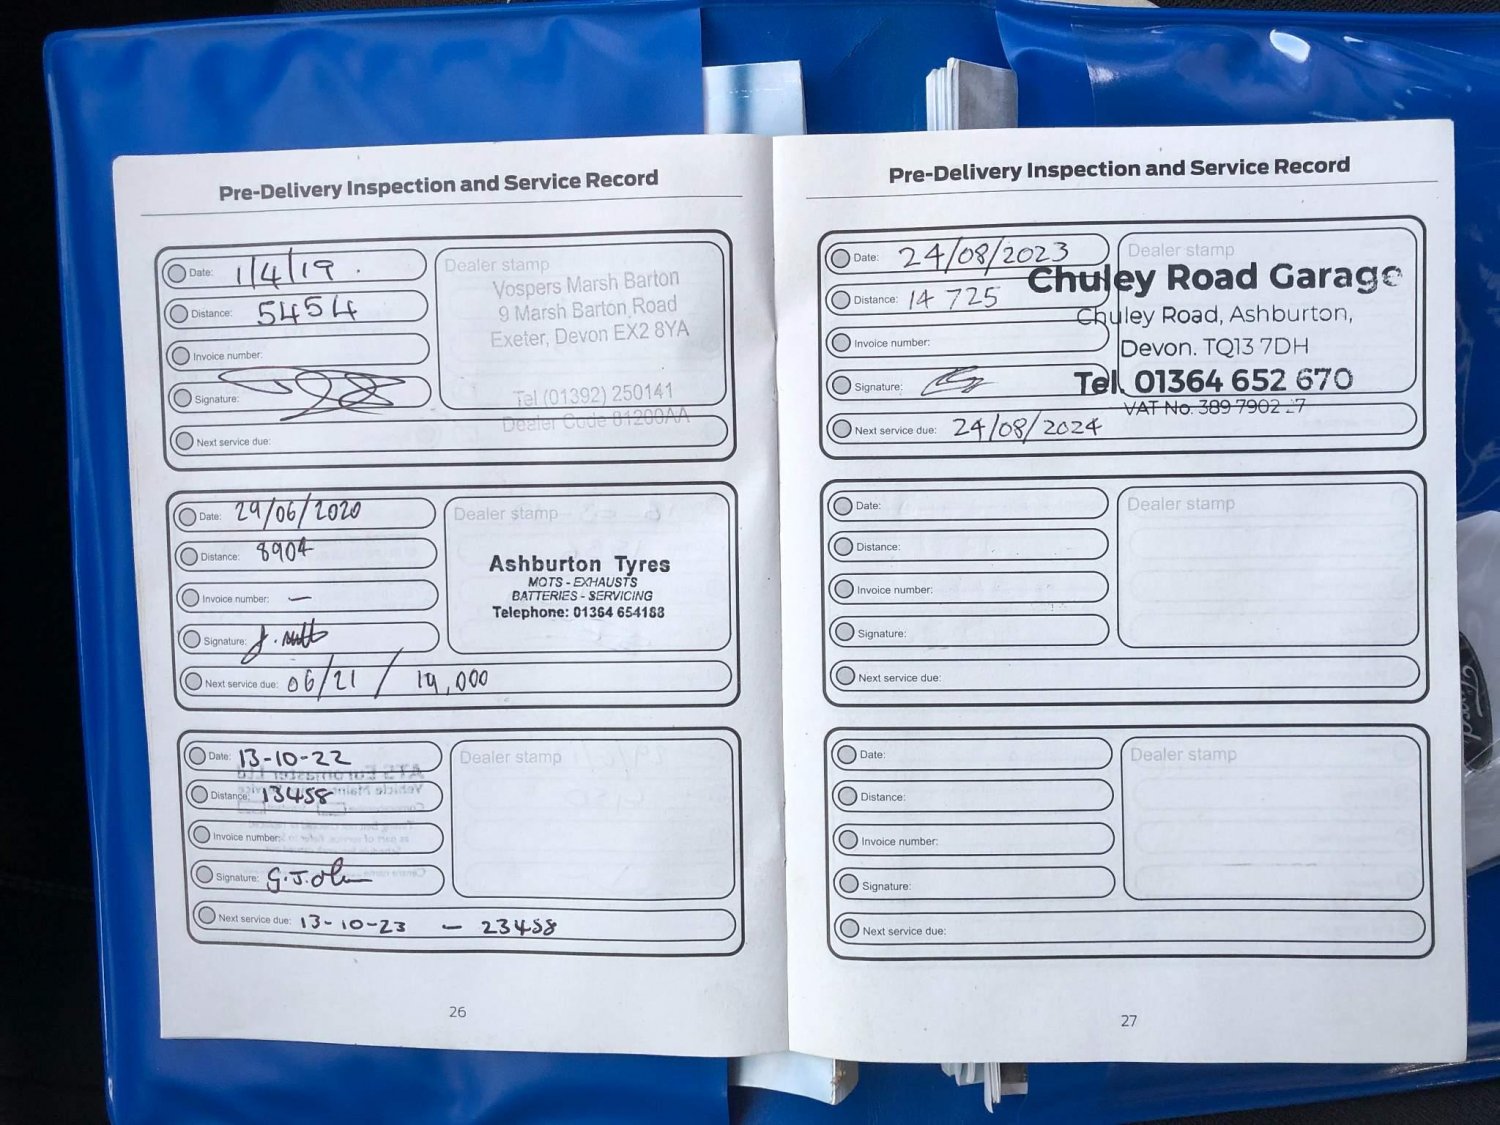 Pre-Delivery Inspection and Service Record
Date: 1/4/19.
Distance: 5454
Invoice number:
Signature:
Next service due:
Dealer stamp
Vospers Marsh Barton
9 Marsh Barton Road
Exeter, Devon EX2 8YA
Tel (01392) 250141
Dealer Code 81200AA
Date: 29/06/2020
Distance: 8904
Invoice number: —
Signature:
Next service due: 06/21 / 19,000
Dealer stamp
Ashburton Tyres
MOTS - EXHAUSTS
BATTERIES - SERVICING
Telephone: 01364 654188
Date: 13-10-22
Distance: 13458
Invoice number:
Signature:
Next service due: 13-10-23 — 23458
Dealer stamp
26
Pre-Delivery Inspection and Service Record
Date: 24/08/2023
Distance: 14 725
Invoice number:
Signature:
Next service due: 24/08/2024
Dealer stamp
Chuley Road Garage
Chuley Road, Ashburton,
Devon. TQ13 7DH
Tel. 01364 652 670
VAT No. 389 7902
Date:
Distance:
Invoice number:
Signature:
Next service due:
Dealer stamp
Date:
Distance:
Invoice number:
Signature:
Next service due:
Dealer stamp
27
Ford